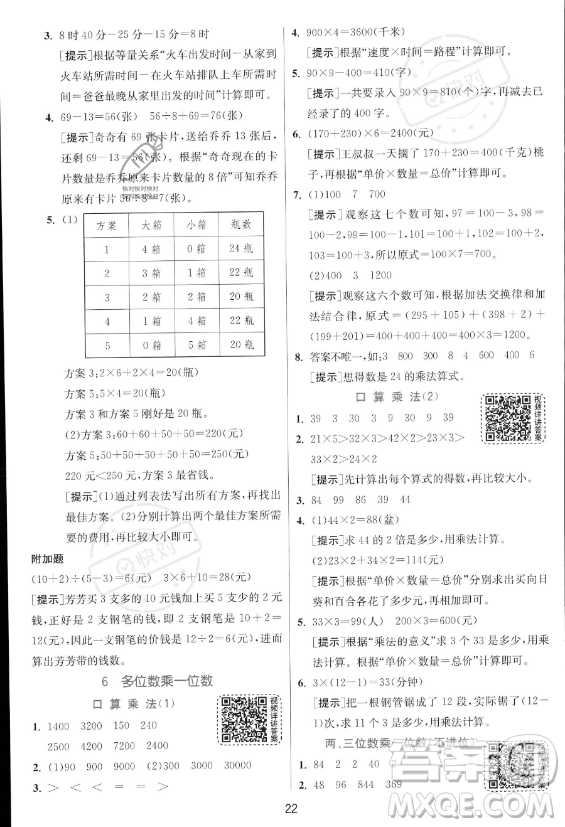 3. 8时40分-25分-15分=8时
[提示]根据等量关系“火车出发时间-从家到
火车站所需时间-在火车站排队上车所需时
间=爸爸最晚从家出发时间”计算即可。
4. 69-13=56(张) 56÷8=7(张)
[提示]奇奇有69张卡片,送给乔乔13张后,
还剩69-13=56(张)。根据“奇奇现在的卡
片数量是乔乔原来卡片数量的8倍”可知乔乔
原来有卡片56÷8=7(张)。
5. (1)
方案 大箱 小箱 瓶数
1 4箱 0箱 24瓶
2 3箱 1箱 22瓶
3 2箱 2箱 20瓶
4 1箱 4箱 22瓶
5 0箱 5箱 20瓶
方案3:2×6+2×4=20(瓶)
方案5:5×4=20(瓶)
方案3和方案5刚好是20瓶。
(2)方案3:60+60+50+50=220(元)
方案5:50+50+50+50+50=250(元)
220元<250元,方案3最省钱。
[提示](1)通过列表法写出所有方案,再找出
最佳方案。(2)分别计算出两个最佳方案所需
要的费用,再比较大小即可。
附加题
(10+2)÷(5-3)=6(元) 3×6+10=28(元)
[提示]芳芳买3支多的10元钱加上买5支少的2元
钱,正好是2支钢笔的价钱,也就是10+2=
12(元),因此一支钢笔的价钱是12÷2=6(元),进而
算出芳芳带的钱数。
6 多位数乘一位数
口算乘法(1)
视频详讲答案
1. 1400 3200 150 240
2500 4200 7200 2400
2. (1)90 900 9000 (2)60 600 6000
3. > < = > = =
4. 900×4=3600(千米)
[提示]根据“速度×时间=路程”计算即可。
5. 90×9-400=410(字)。
[提示]一共要录入90×9=810(个)字,再减去已
经录入的400字。
6. (170+230)×6=2400(元)
[提示]王叔叔一天摘了170+230=400(千克)桃
子,再根据“单价×数量=总价”计算即可。
7. (1)100 7 700
[提示]观察这七个数可知,97=100-3,98=
100-2,99=100-1,101=100+1,102=100+2,
103=100+3,所以原式=100×7=700。
(2)400 3 1200
[提示]观察这六个数可知,根据加法交换律和加
法结合律,原式=(295+105)+(398+2)+
(199+201)=400+400+400=400×3=1200。
8. 答案不唯一,如:3 800 300 8 4 600 400 6
[提示]想得数是24的乘法算式。
口算乘法(2)
视频详讲答案
1. 39 3 30 9 39 30 9 39
2. 21×5>32×3>42×2>23×3>
33×2>24×2
[提示]先计算出每个算式的得数,再比较大小。
3. 84 99 86 39 44 88
4. (1)44×2=88(盆)
[提示]求44的2倍是多少,用乘法计算。
(2)23×2+34×3=148(元)
[提示]根据“单价×数量=总价”分别求出买向日
葵和百合各花了多少元,再相加即可。
5. 3×33=99(人) 200+99×2=398(元)
[提示]根据“乘法的意义”求3个33是多少,用乘
法计算。
6. 3×(12-1)=33(分钟)
[提示]把一根钢管锯成了12段,实际锯了(12-
1)次,就是求11个3是多少,用乘法计算。
两、三位数乘一位数(不进位)
1. 84 2 2 40
2. 48 96 844 369
22